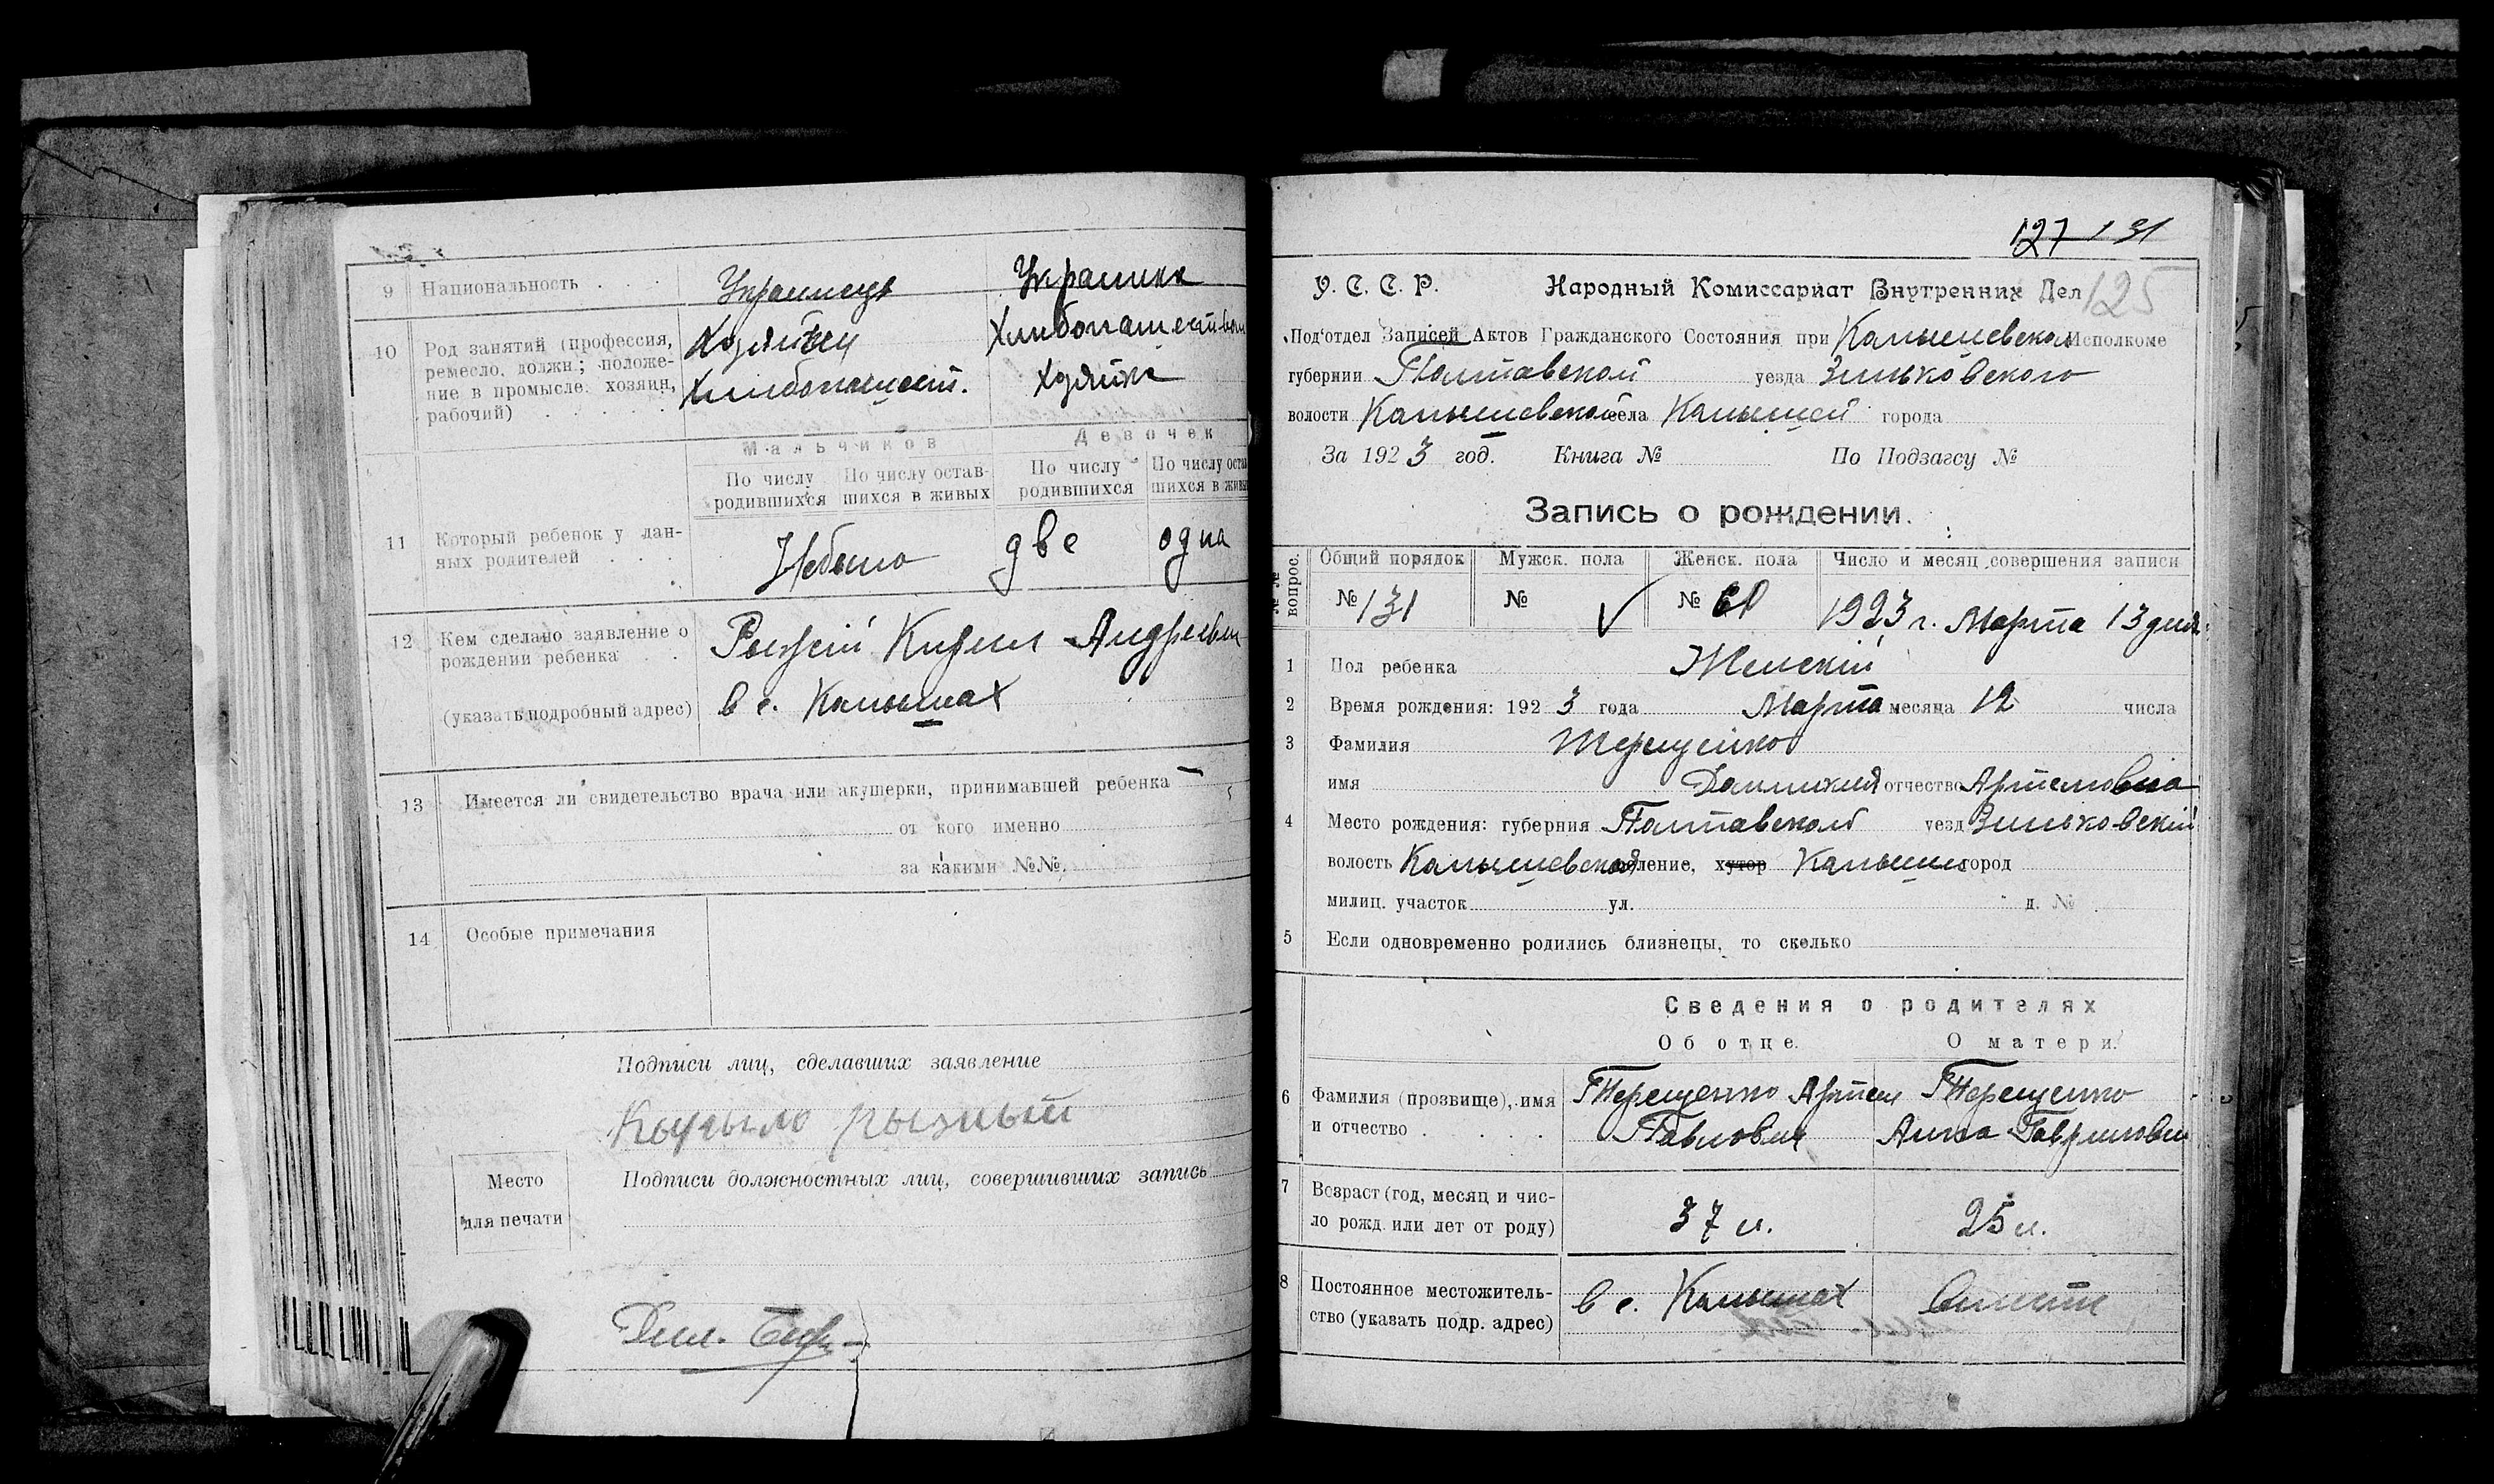 9 Национальность . . . Украинец Украинка
10 Род занятий (профессия, ремесло, должн.; положе-
ние в промысле: хозяин,
рабочий) . . . . .
Хозяин Хлибопашест.
Хлибопашество
Мальчиков Девочек
По числу родившихся По числу остав-
шихся в живых По числу родившихся По числу остав
шихся в живы
11 Который ребенок у дан-
ных родителей . . . Небыло две одна
12 Кем сделано заявление о
рождении ребенка . .
(указать подробный адрес)
Андреевич
в с. Камышах
13 Имеется ли свидетельство врача или акушерки, принимавшей ребенка —
от кого именно
за какими №№.
14 Особые примечания
Подписи лиц, сделавших заявление
Кырыло
Место
для печати
Подписи должностных лиц, совершивших запись
127 131
У. С. С. Р. Народный Комиссариат Внутренних Дел 125
Под'отдел Записей Актов Гражданского Состояния при Камышевском Исполкоме
губернии Полтавской уезда Зиньковского
волости Камышевской села Камышей города
За 1923 год. Книга № По Подзагсу №
Запись о рождении.
№№ вопрос. Общий порядок Мужск. пола Женск. пола Число и месяц совершения записи
№ 131 № № 60 1923 г. Марта 13 дня
1 Пол ребенка Женский
2 Время рождения: 1923 года Марта месяца 12 числа
3 Фамилия Терещенко
имя отчество Артемовна
4 Место рождения: губерния Полтавской уезд Зиньковский
волость Камышевской селение, хутор Камыши город
милиц. участок ул. д. №
5 Если одновременно родились близнецы, то сколько
Сведения о родителях
Об отце. О матери.
6 Фамилия (прозвище), имя
и отчество . . . .
Терещенко Артем
Павлович
Терещенко
Анна Гавриловн
7 Возраст (год, месяц и чис-
ло рожд. или лет от роду) 37 л. 25 л.
8 Постоянное местожитель-
ство (указать подр. адрес) в с. Камышах вместе